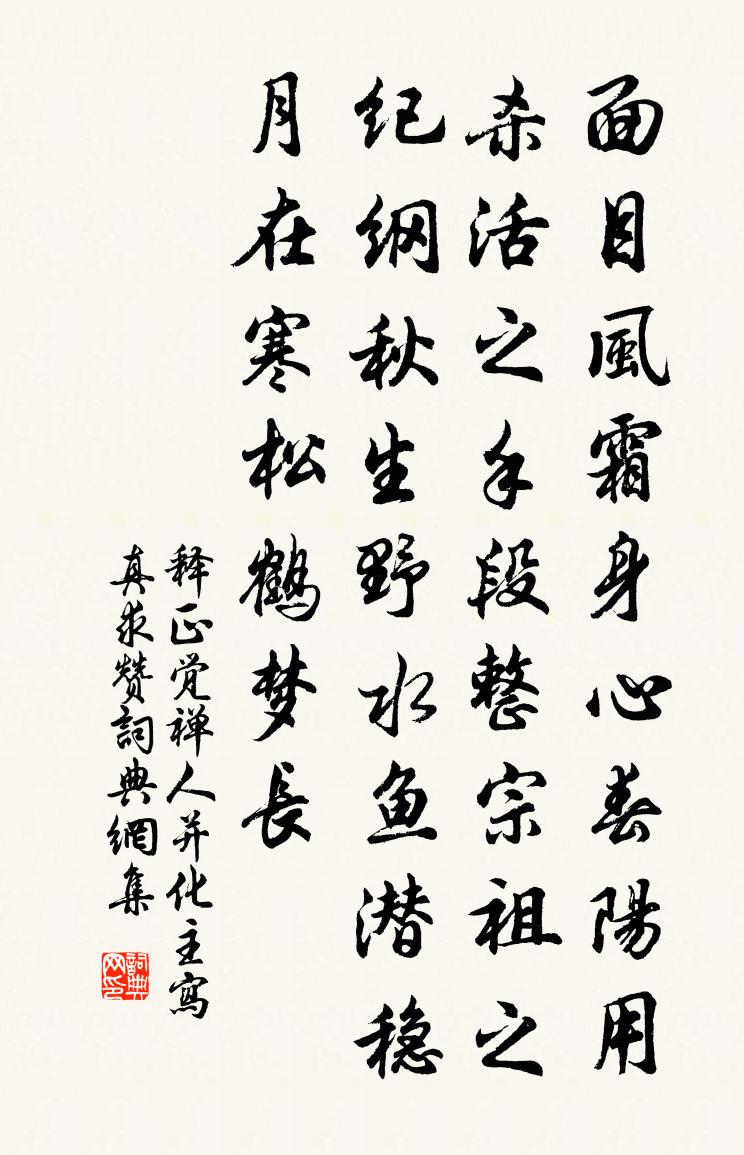 面目風霜身心春陽用
杀活之手段整宗祖之
纪纲秋生野水鱼潜稳
月在寒松鹤梦长
释正觉禅人并化主寫
真求赞詞典網集
詞典网印